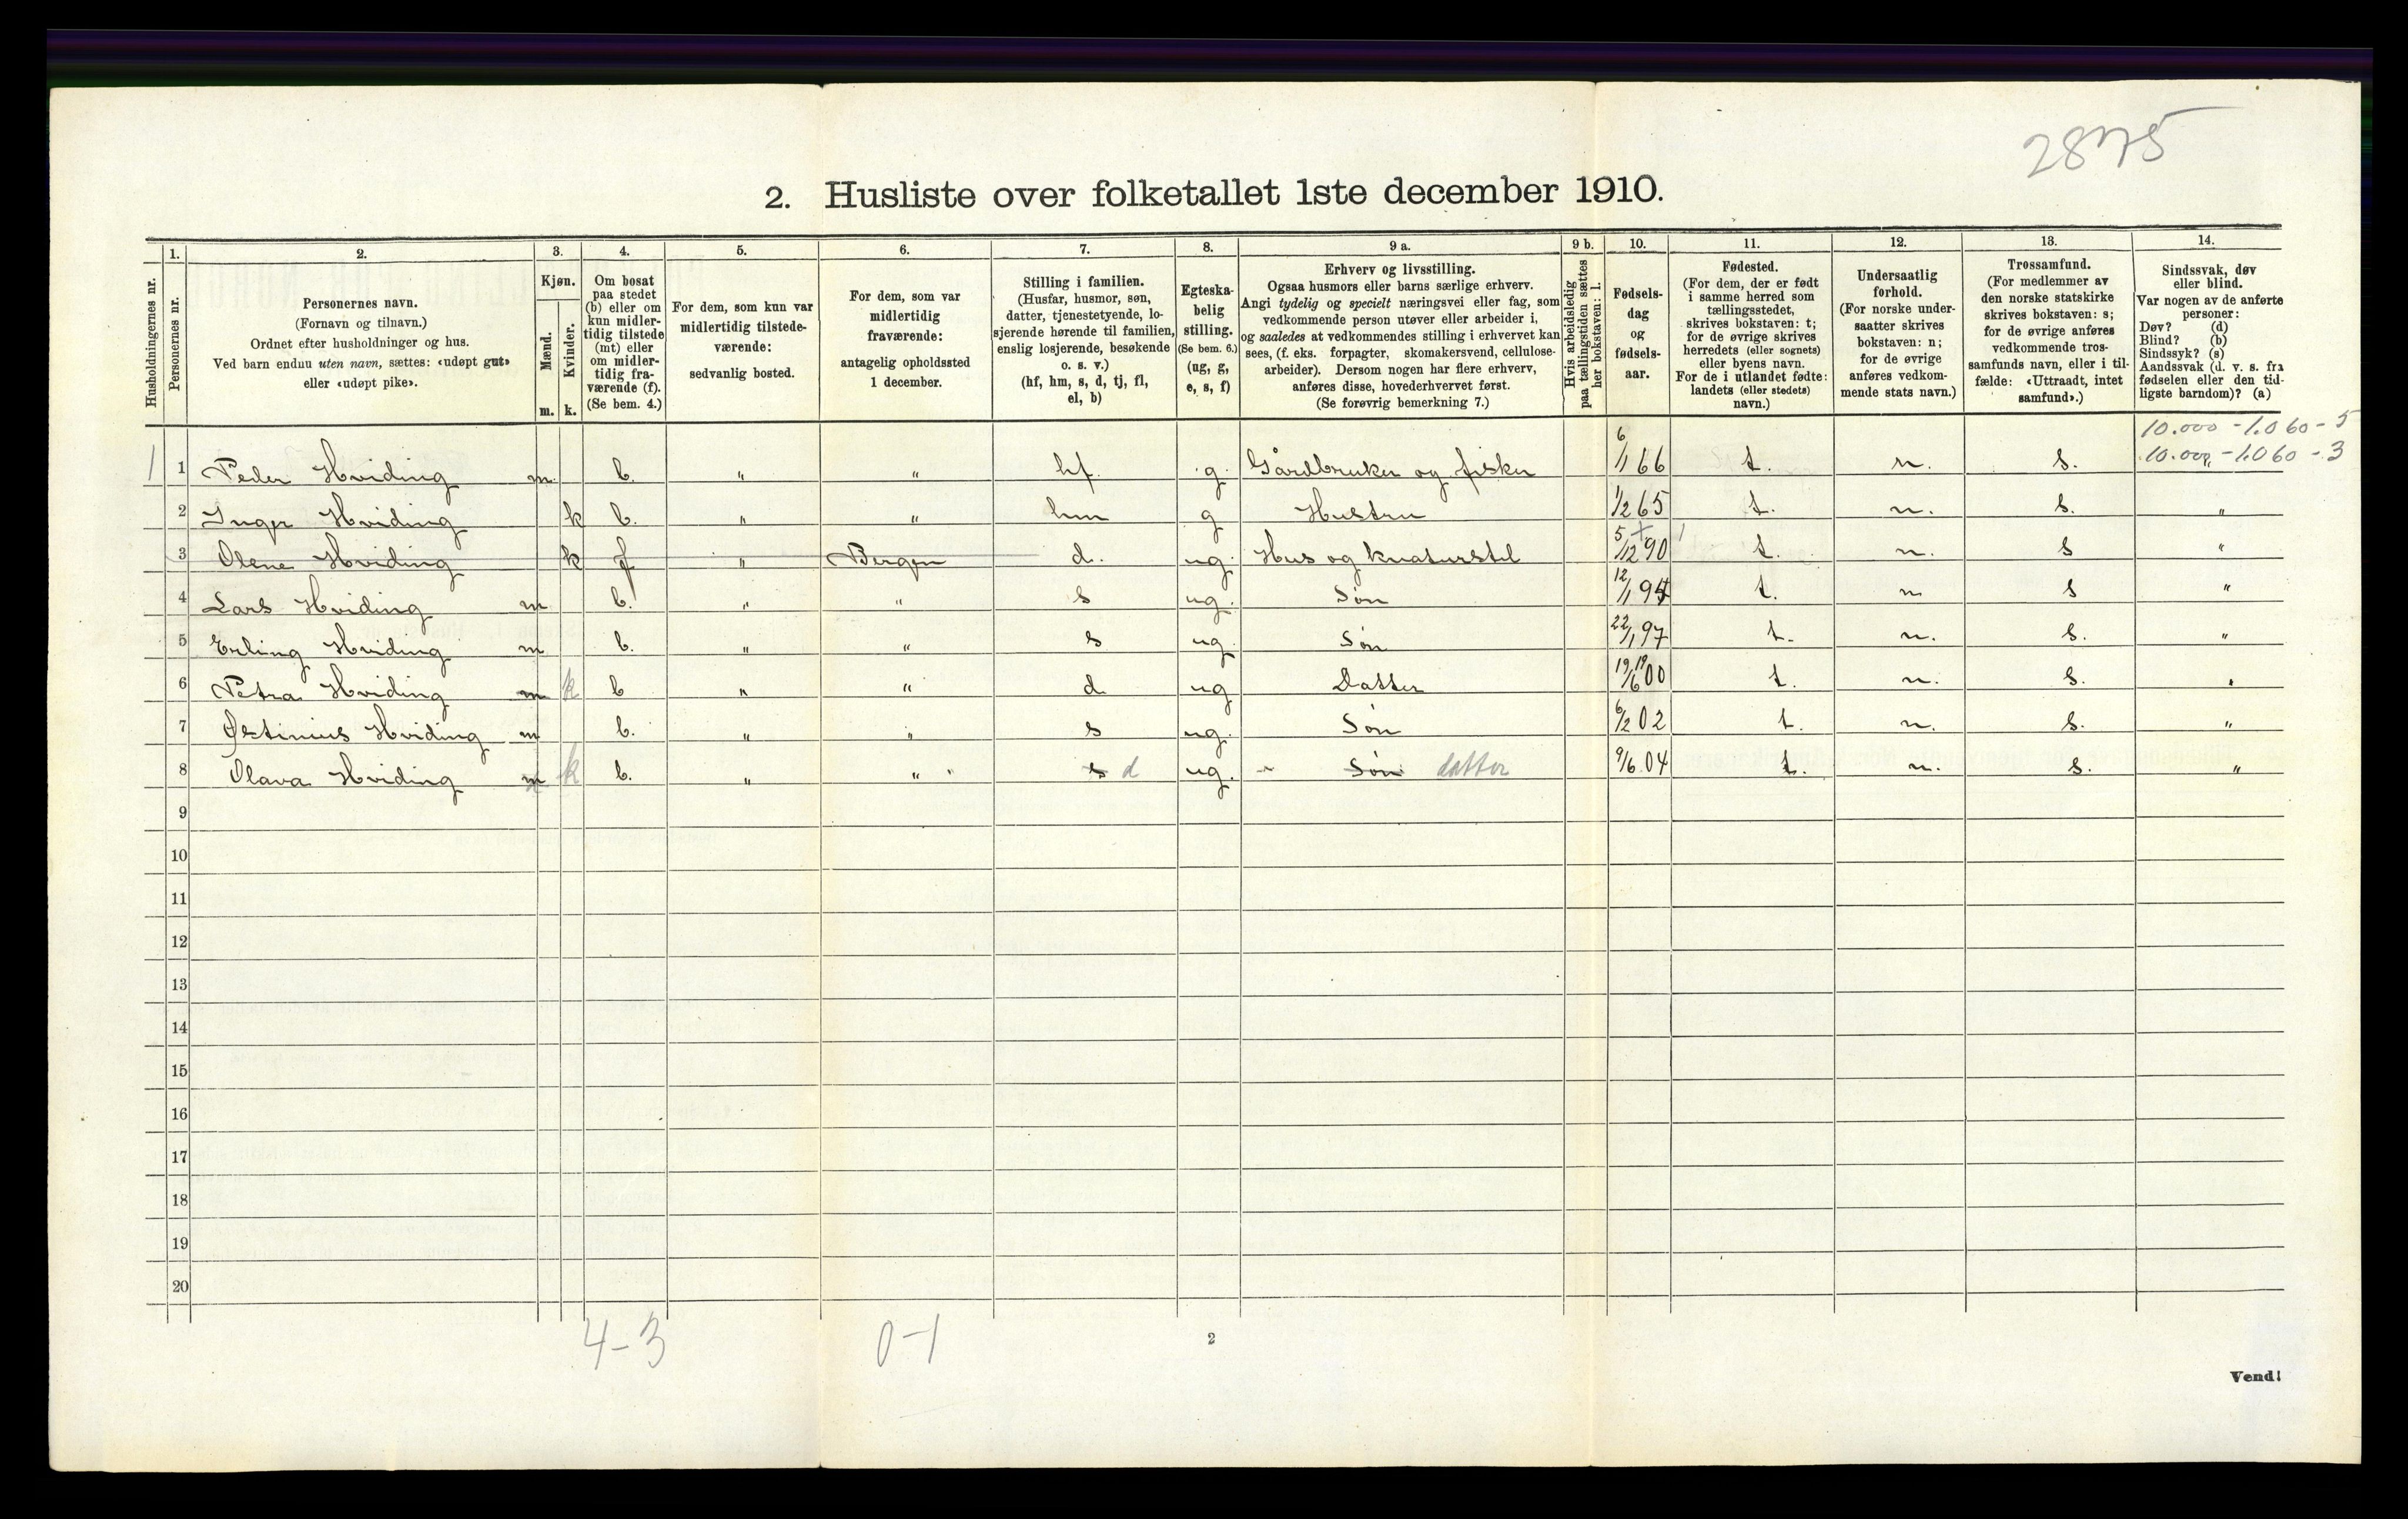 2875
2. Husliste over folketallet 1ste december 1910.
Husholdningernes nr.
1. Personernes nr.
2. Personernes navn. (Fornavn og tilnavn.) Ordnet efter husholdninger og hus. Ved barn endnu uten navn, sættes: «udøpt gut» eller «udøpt pike».
3. Kjøn. Mænd. m. Kvinder. k.
4. Om bosat paa stedet (b) eller om kun midlertidig tilstede (mt) eller om midlertidig fraværende (f). (Se bem. 4.)
5. For dem, som kun var midlertidig tilstedeværende: sedvanlig bosted.
6. For dem, som var midlertidig fraværende: antagelig opholdssted 1 december.
7. Stilling i familien. (Husfar, husmor, søn, datter, tjenestetyende, losjerende hørende til familien, enslig losjerende, besøkende o. s. v.) (hf, hm, s, d, tj, fl, el, b)
8. Egteskabelig stilling. (Se bem. 6.) (ug, g, e, s, f)
9 a. Erhverv og livsstilling. Ogsaa husmors eller barns særlige erhverv. Angi tydelig og specielt næringsvei eller fag, som vedkommende person utøver eller arbeider i, og saaledes at vedkommendes stilling i erhvervet kan sees, (f. eks. forpagter, skomakersvend, cellulosearbeider). Dersom nogen har flere erhverv, anføres disse, hovederhvervet først. (Se forøvrig bemerkning 7.)
9 b. Hvis arbeidsledig paa tællingstiden sættes her bokstaven: l.
10. Fødselsdag og fødselsaar.
11. Fødested. (For dem, der er født i samme herred som tællingsstedet, skrives bokstaven: t; for de øvrige skrives herredets (eller sognets) eller byens navn. For de i utlandet fødte: landets (eller stedets) navn.)
12. Undersaatlig forhold. (For norske undersaatter skrives bokstaven: n; for de øvrige anføres vedkommende stats navn.)
13. Trossamfund. (For medlemmer av den norske statskirke skrives bokstaven: s; for de øvrige anføres vedkommende trossamfunds navn, eller i tilfælde: «Uttraadt, intet samfund».)
14. Sindssvak, døv eller blind. Var nogen av de anførte personer: Døv? (d) Blind? (b) Sindssyk? (s) Aandssvak (d. v. s. fra fødselen eller den tidligste barndom)? (a)
10.000 - 1.060 - 5
10.000 - 1.060 - 3
1 1 Peder Hviding m. b. " " hf. g. Gårdbruker og fisker 6/1 66 t. n. s. "
2 Inger Hviding k b. " " hm g Hustru 1/2 65 t. n. s. "
3 Olene Hviding k f " Bergen d. ug. Hus og kreaturstel 5/12 90 t. n. s "
4 Lars Hviding m b. " " s ug. Søn 12/1 94 t. n s "
5 Erling Hviding m b. " " s ug. Søn 22/1 97 t. n. s. "
6 Petra Hviding m k b " " d ug Datter 19/6 00 t. n. s. "
7 Østinius Hviding m b. " " s ug. Søn 6/2 02 t. n. s. "
8 Olava Hviding m k b. " " s d ug. Søn datter 9/6 04 t. n. s. "
9
10
11
12
13
14
15
16
17
18
19
20
4-3 0-1
2
Vend!